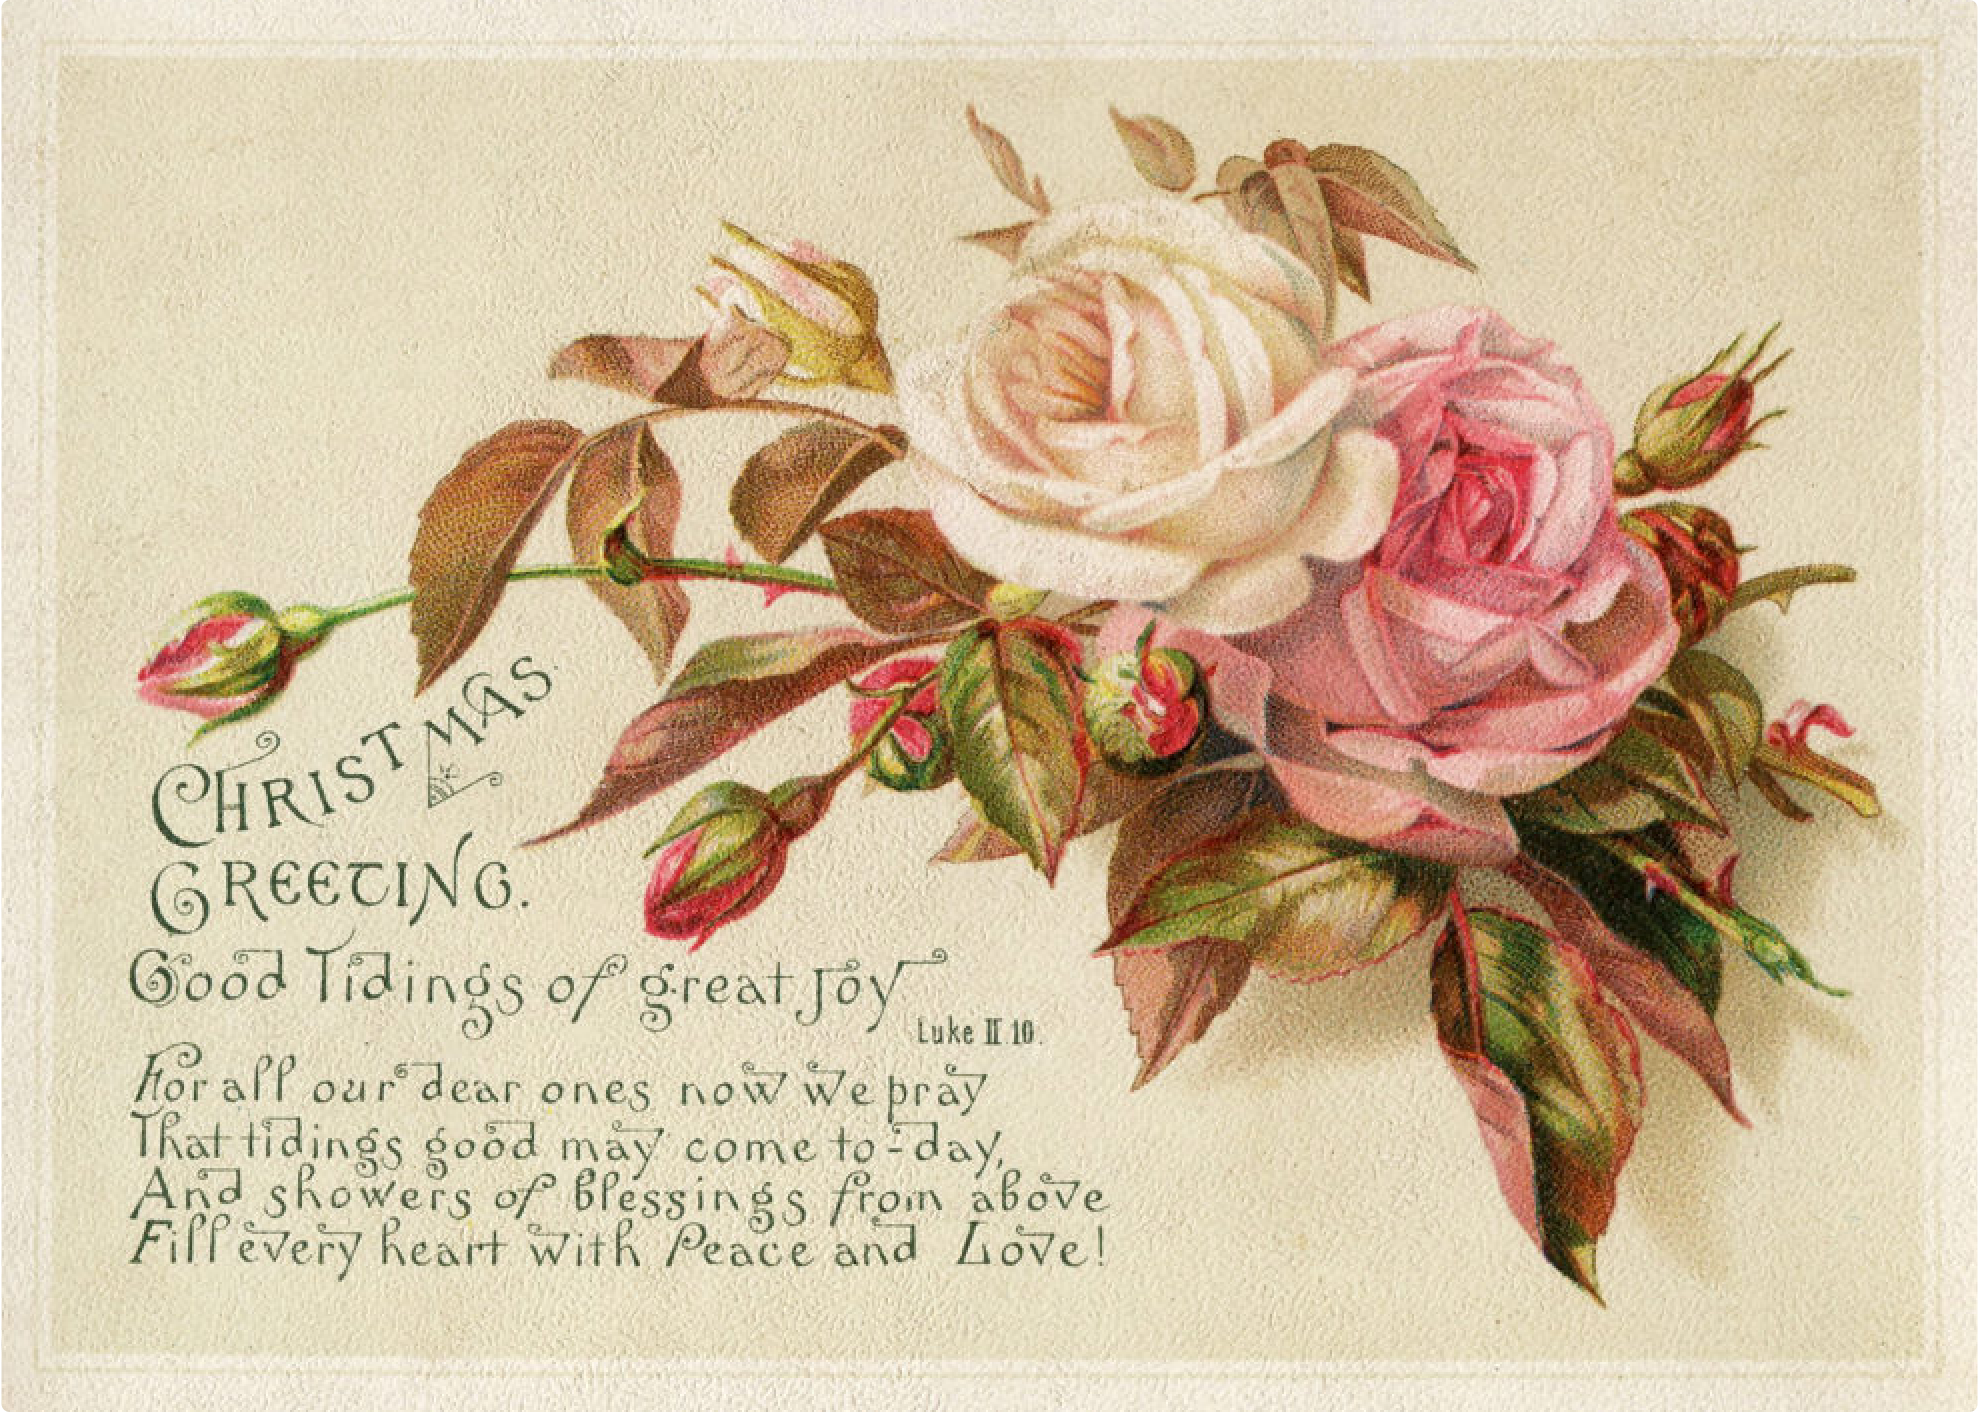 CHRISTMAS.
GREETING.
Good Tidings of great Joy
Luke II 10.
For all our dear ones now we pray
That tidings good may come to-day,
And showers of blessings from above
Fill every heart with Peace and Love!